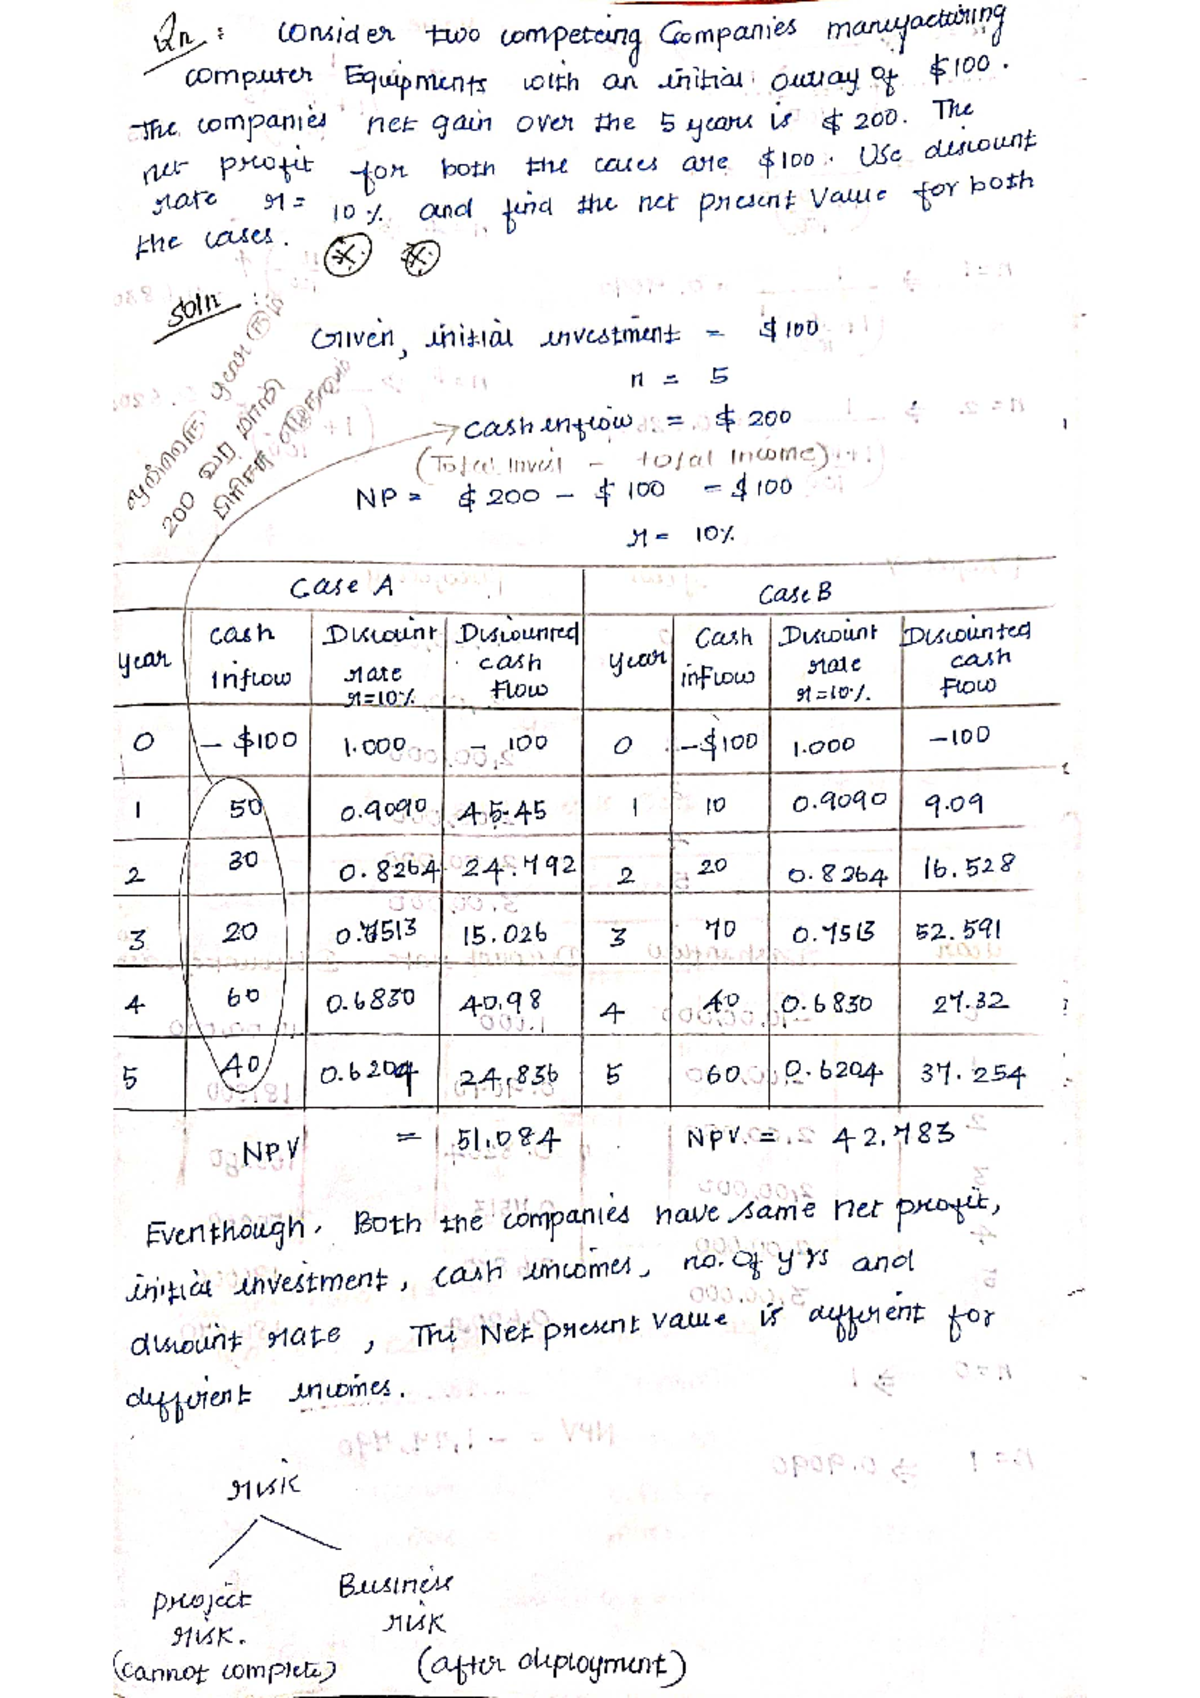 Qn : Consider two competeing Companies manufacturing
computer Equipments with an initial outlay of $100.
The companies net gain over the 5 years is $ 200. The
net profit for both the cases are $100. Use discount
rate r = 10% and find the net present value for both
the cases.
Soln :
Given, initial investment = $100
n = 5
cash inflow = $ 200
(Total Invest - total Income)
200 வர மாதிரி
NP = $ 200 - $ 100 = $ 100
r = 10%
Case A Case B
year cash inflow Discount rate r=10% Discounted cash flow year Cash inflow Discount rate r=10% Discounted cash flow
0 - $100 1.000 - 100 0 -$100 1.000 -100
1 50 0.9090 45.45 1 10 0.9090 9.09
2 30 0.8264 24.792 2 20 0.8264 16.528
3 20 0.7513 15.026 3 70 0.7513 52.591
4 60 0.6830 40.98 4 40 0.6830 27.32
5 40 0.6209 24.836 5 60 0.6209 37.254
NPV = 51.084 NPV. = 42.783
Eventhough, Both the companies have same net profit,
initial investment, cash incomes, no. of yrs and
discount rate, The Net present value is different for
different incomes.
risk
project risk. Business risk
(cannot complete) (after deployment)